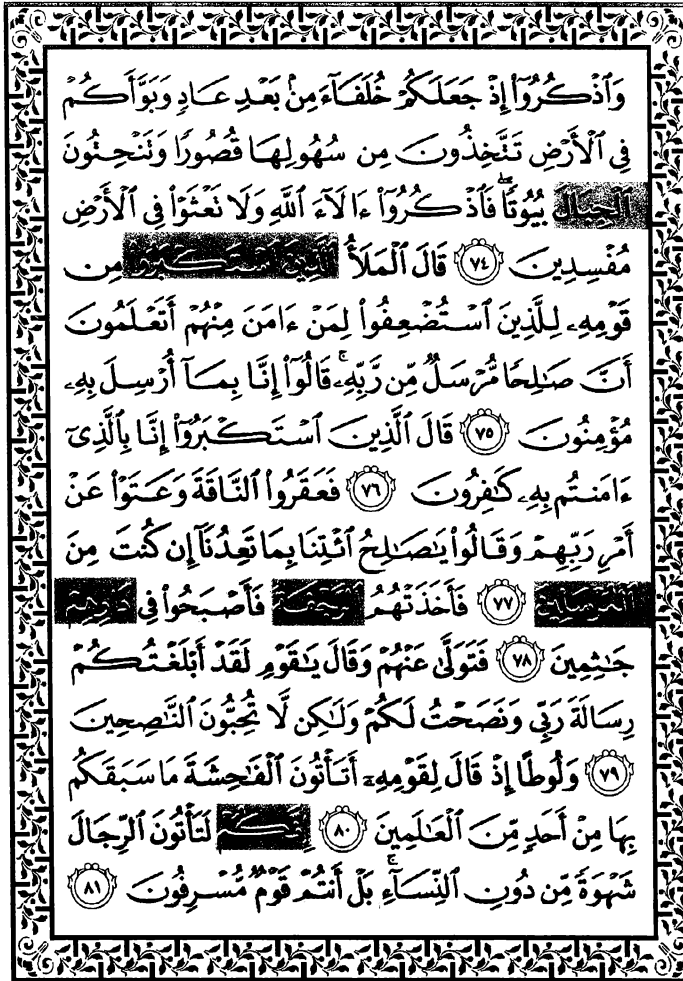 وَاذْكُرُوٓا۟ إِذْ جَعَلَكُمْ خُلَفَآءَ مِنۢ بَعْدِ عَادٍ وَبَوَّأَكُمْ
فِي الْأَرْضِ تَتَّخِذُونَ مِن سُهُولِهَا قُصُورًا وَتَنْحِتُونَ
الْجِبَالَ بُيُوتًا ۖ فَاذْكُرُوٓا۟ ءَالَآءَ اللَّهِ وَلَا تَعْثَوْا۟ فِي الْأَرْضِ
مُفْسِدِينَ ٧٤ قَالَ الْمَلَأُ الَّذِينَ اسْتَكْبَرُوا۟ مِن
قَوْمِهِۦ لِلَّذِينَ اسْتُضْعِفُوا۟ لِمَنْ ءَامَنَ مِنْهُمْ أَتَعْلَمُونَ
أَنَّ صَٰلِحًا مُّرْسَلٌ مِّن رَّبِّهِۦ ۚ قَالُوٓا۟ إِنَّا بِمَآ أُرْسِلَ بِهِۦ
مُؤْمِنُونَ ٧٥ قَالَ الَّذِينَ اسْتَكْبَرُوٓا۟ إِنَّا بِالَّذِىٓ
ءَامَنتُم بِهِۦ كَٰفِرُونَ ٧٦ فَعَقَرُوا۟ النَّاقَةَ وَعَتَوْا۟ عَنْ
أَمْرِ رَبِّهِمْ وَقَالُوا۟ يَٰصَٰلِحُ ائْتِنَا بِمَا تَعِدُنَآ إِن كُنتَ مِنَ
الْمُرْسَلِينَ ٧٧ فَأَخَذَتْهُمُ الرَّجْفَةُ فَأَصْبَحُوا۟ فِي دَارِهِمْ
جَٰثِمِينَ ٧٨ فَتَوَلَّىٰ عَنْهُمْ وَقَالَ يَٰقَوْمِ لَقَدْ أَبْلَغْتُكُمْ
رِسَالَةَ رَبِّي وَنَصَحْتُ لَكُمْ وَلَٰكِن لَّا تُحِبُّونَ النَّٰصِحِينَ
٧٩ وَلُوطًا إِذْ قَالَ لِقَوْمِهِۦٓ أَتَأْتُونَ الْفَٰحِشَةَ مَا سَبَقَكُم
بِهَا مِنْ أَحَدٍ مِّنَ الْعَٰلَمِينَ ٨٠ إِنَّكُمْ لَتَأْتُونَ الرِّجَالَ
شَهْوَةً مِّن دُونِ النِّسَآءِ ۚ بَلْ أَنتُمْ قَوْمٌ مُّسْرِفُونَ ٨١